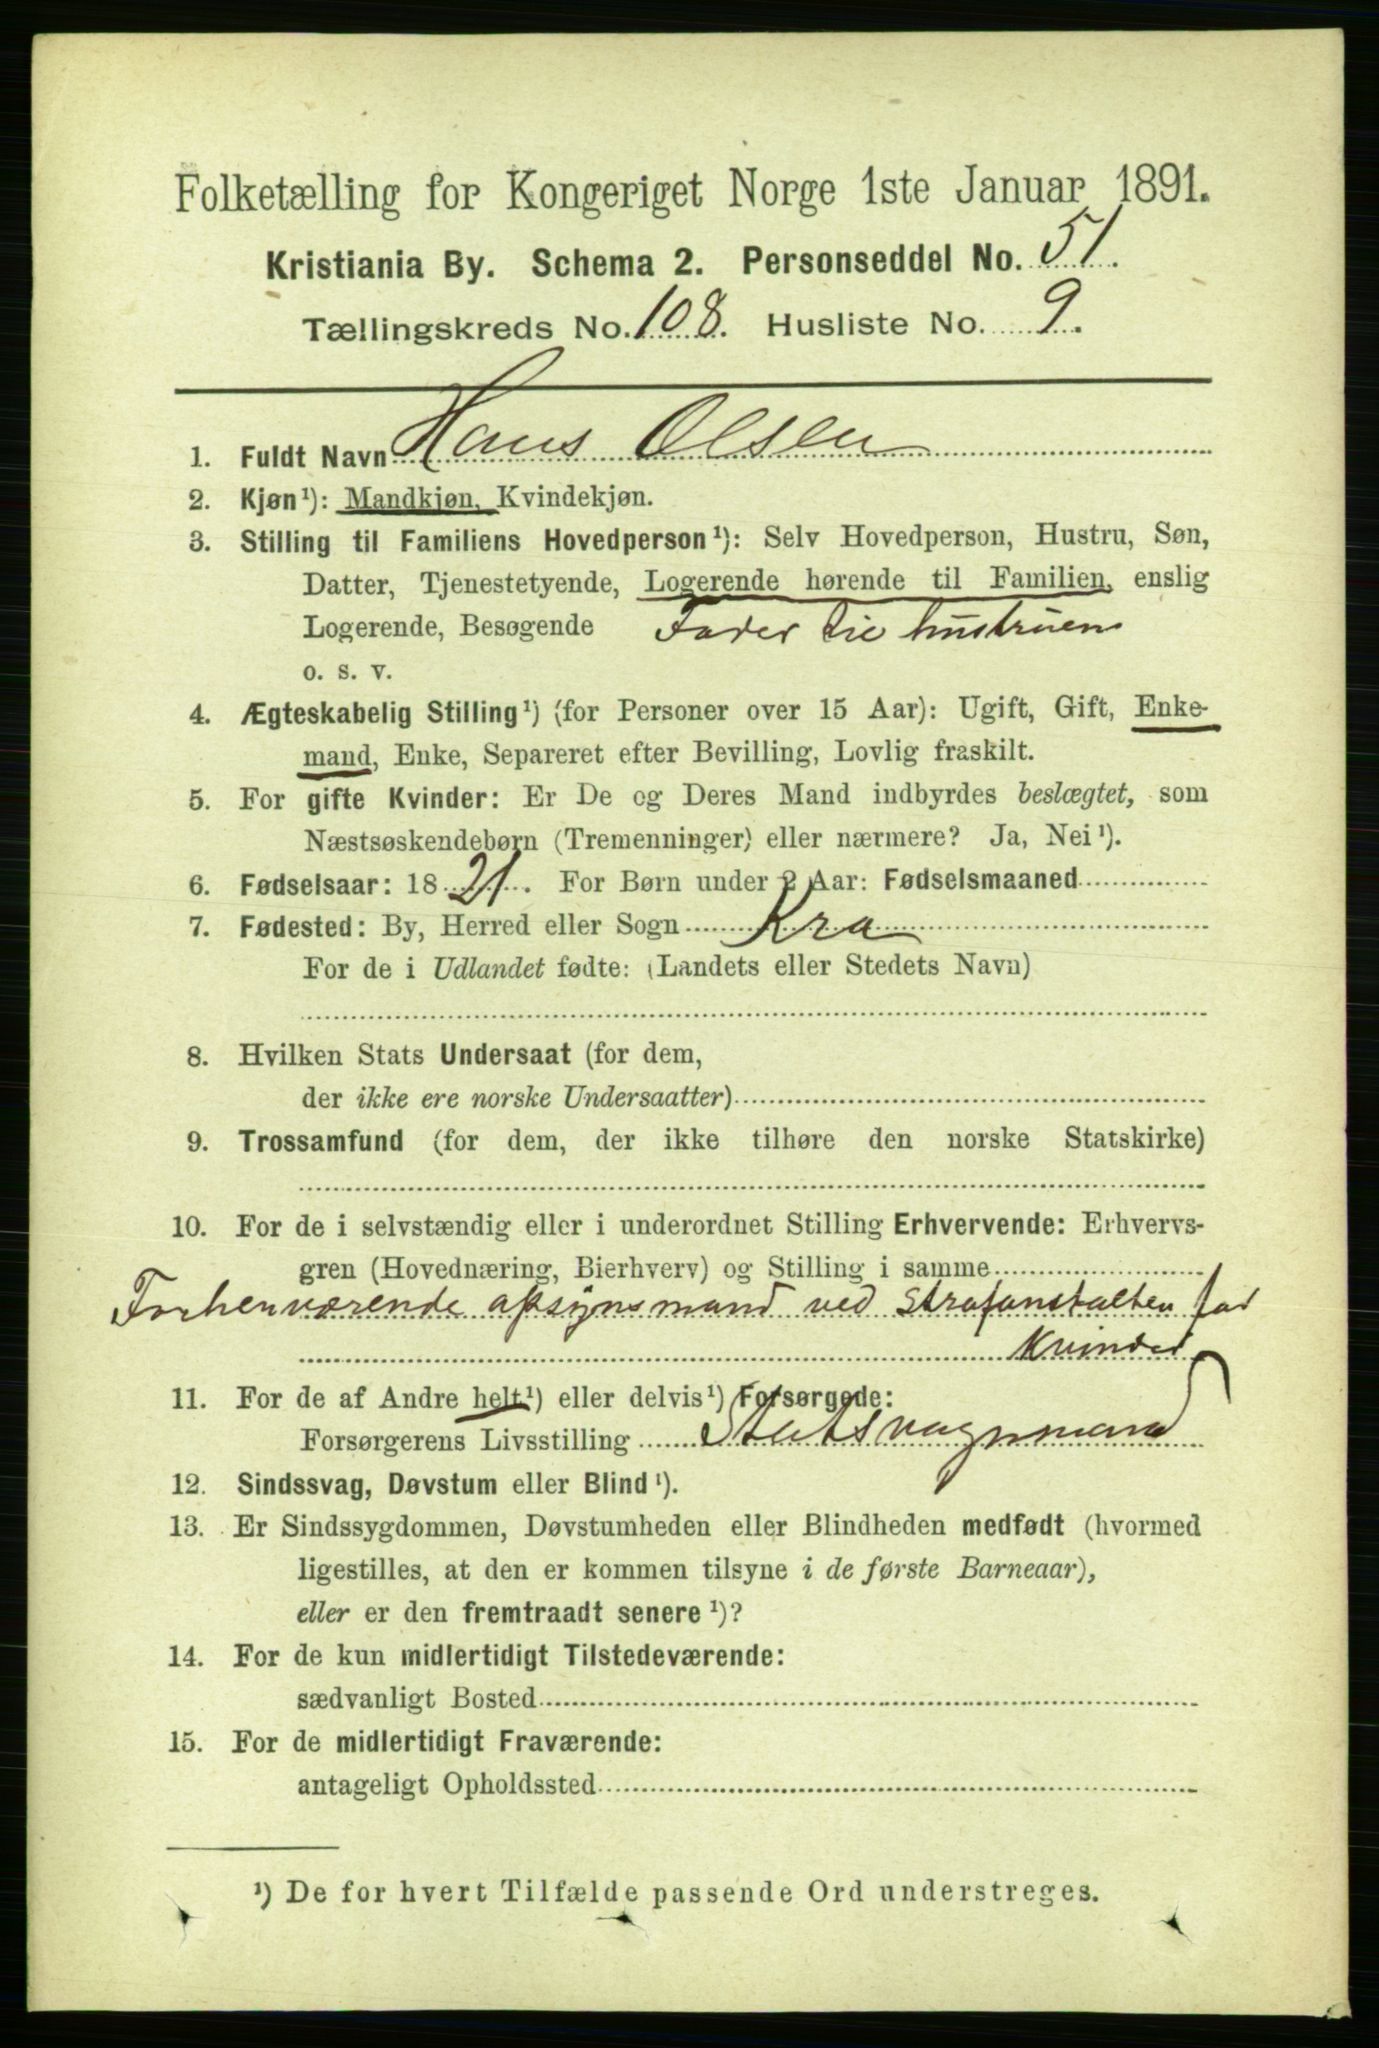 Folketælling for Kongeriget Norge 1ste Januar 1891.
Kristiania By. Schema 2. Personseddel No. 51.
Tællingskreds No. 108. Husliste No. 9.
1. Fuldt Navn Hans Olsen
2. Kjøn¹): Mandkjøn, Kvindekjøn.
3. Stilling til Familiens Hovedperson¹): Selv Hovedperson, Hustru, Søn,
Datter, Tjenestetyende, Logerende hørende til Familien, enslig
Logerende, Besøgende Fader til hustruen
o. s. v.
4. Ægteskabelig Stilling¹) (for Personer over 15 Aar): Ugift, Gift, Enke-
mand, Enke, Separeret efter Bevilling, Lovlig fraskilt.
5. For gifte Kvinder: Er De og Deres Mand indbyrdes beslægtet, som
Næstsøskendebørn (Tremenninger) eller nærmere? Ja, Nei¹).
6. Fødselsaar: 1821. For Børn under 2 Aar: Fødselsmaaned
7. Fødested: By, Herred eller Sogn Kra
For de i Udlandet fødte: (Landets eller Stedets Navn)
8. Hvilken Stats Undersaat (for dem,
der ikke ere norske Undersaatter)
9. Trossamfund (for dem, der ikke tilhøre den norske Statskirke)
10. For de i selvstændig eller i underordnet Stilling Erhvervende: Erhvervs-
gren (Hovednæring, Bierhverv) og Stilling i samme
Forhenværende opsynsmand ved Strafanstalten for
Kvinder
11. For de af Andre helt¹) eller delvis¹) Forsørgede:
Forsørgerens Livsstilling
12. Sindssvag, Døvstum eller Blind¹).
13. Er Sindssygdommen, Døvstumheden eller Blindheden medfødt (hvormed
ligestilles, at den er kommen tilsyne i de første Barneaar),
eller er den fremtraadt senere¹)?
14. For de kun midlertidigt Tilstedeværende:
sædvanligt Bosted
15. For de midlertidigt Fraværende:
antageligt Opholdssted
¹) De for hvert Tilfælde passende Ord understreges.